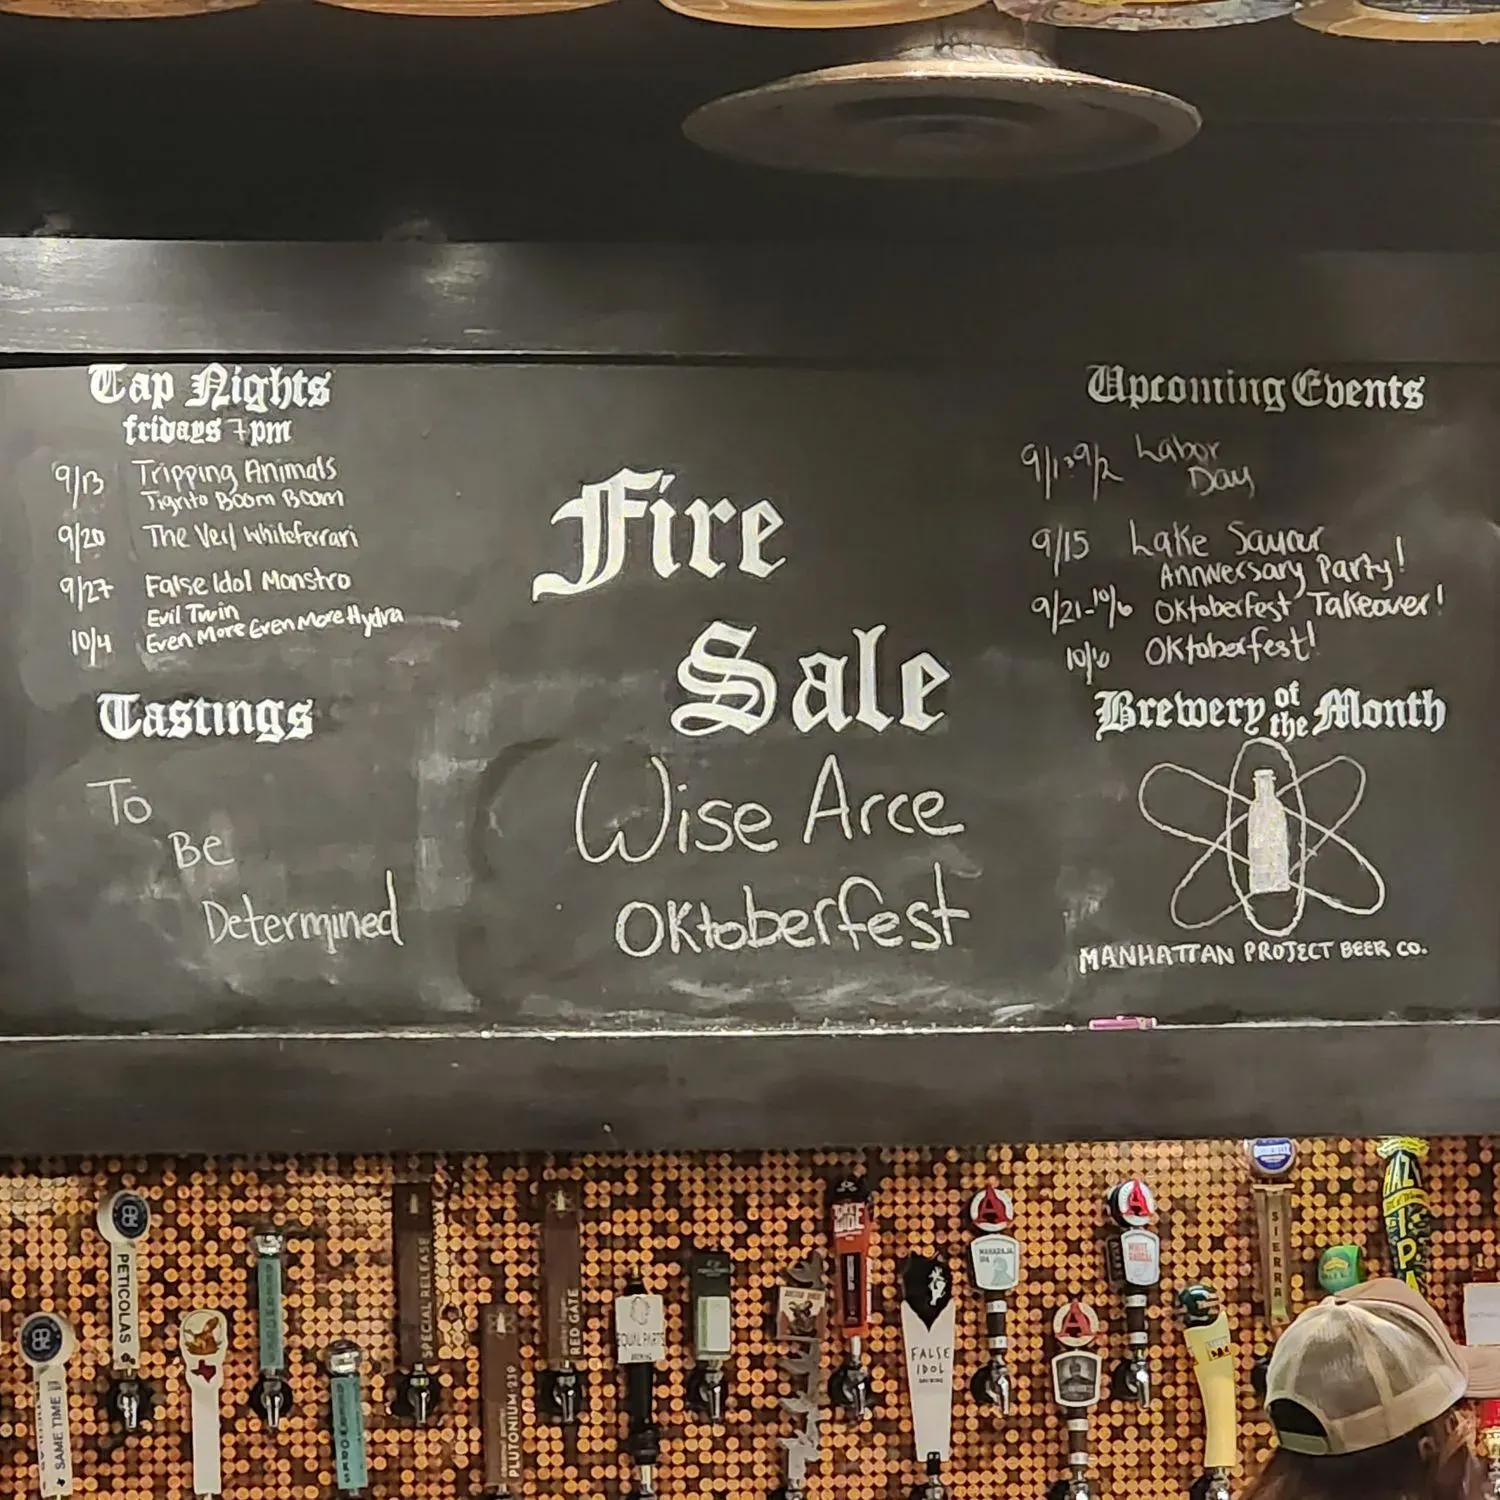 Tap Nights
fridays 7pm
9/13 Tripping Animals
Tigrito Boom Boom
9/20 The Veil Whiteferrari
9/27 False Idol Monstro
Evil Twin
10/4 Even More Even More Hydra
Tastings
To
Be
Determined
Fire
Sale
Wise Arce
Oktoberfest
Upcoming Events
9/1, 9/2 Labor
Day
9/15 Lake
Anniversary Party!
9/21-10/6 Oktoberfest Takeover!
10/6 Oktoberfest!
Brewery of the Month
MANHATTAN PROJECT BEER CO.
PETICOLAS
SAME TIME
SPECIAL RELEASE
PLUTONIUM-239
RED GATE
EQUAL PARTS
BREWING
FALSE
IDOL
BREWING
A
MAHARAJA
IPA
A
WHITE
RASCAL
A
SIERRA
HAZY
IPA